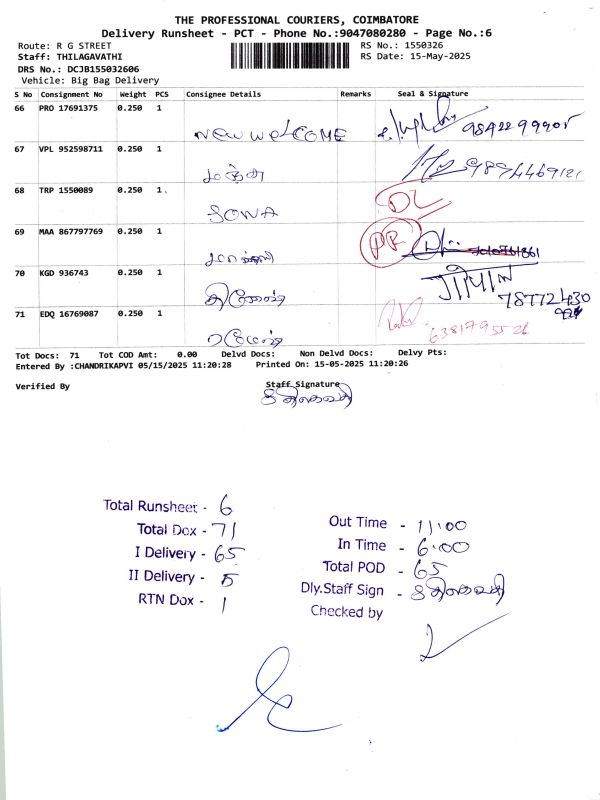 THE PROFESSIONAL COURIERS, COIMBATORE
Delivery Runsheet - PCT - Phone No.:9047080280 - Page No.:6
Route: R G STREET
RS No.: 1550326
Staff: THILAGAVATHI
RS Date: 15-May-2025
DRS No.: DCJB155032606
Vehicle: Big Bag Delivery
S No Consignment No Weight PCS Consignee Details Remarks Seal & Signature
66 PRO 17691375 0.250 1
NEW WELCOME 9842299905
67 VPL 952598711 0.250 1
9894469121
68 TRP 1550089 0.250 1
SONA DL
69 MAA 867797769 0.250 1
PR
70 KGD 936743 0.250 1
தினேஷ் 78772430
71 EDQ 16769087 0.250 1
ரமேஷ்
Tot Docs: 71 Tot COD Amt: 0.00 Delvd Docs: Non Delvd Docs: Delvy Pts:
Entered By :CHANDRIKAPVI 05/15/2025 11:20:28 Printed On: 15-05-2025 11:20:26
Verified By Staff Signature
திலகவதி
Total Runsheet - 6
Total Dox - 71
I Delivery - 65
II Delivery - 5
RTN Dox - 1
Out Time - 11:00
In Time - 6:00
Total POD - 65
Dly.Staff Sign - திலகவதி
Checked by